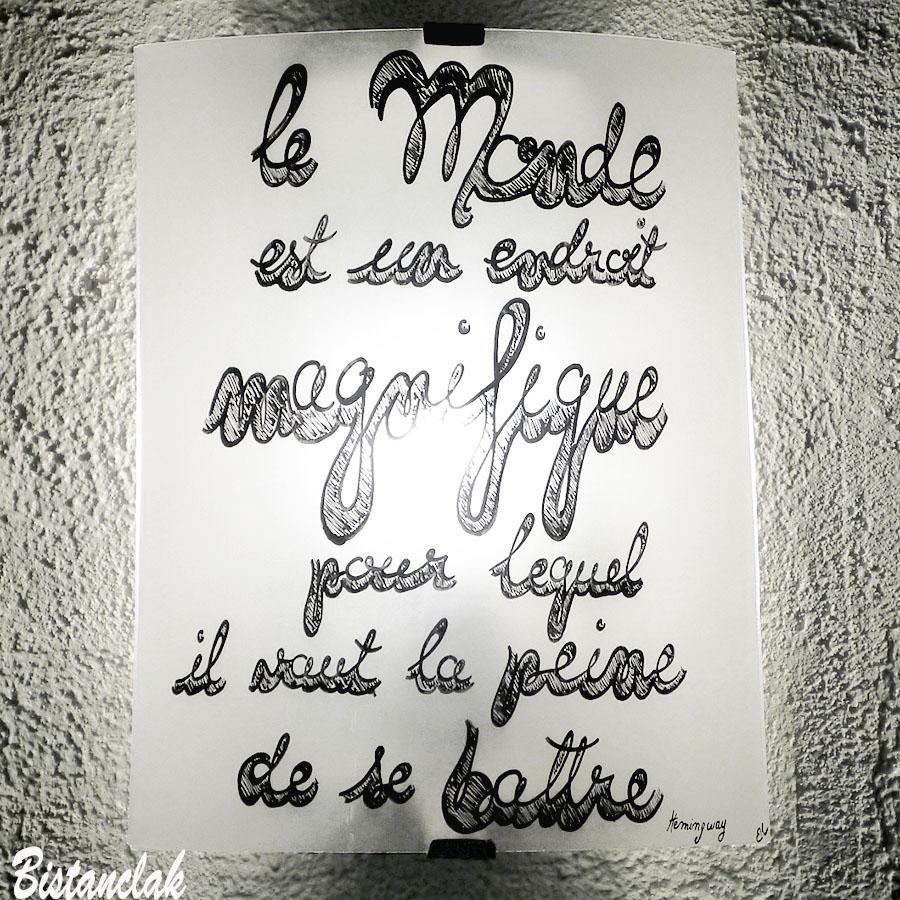 le Monde
est un endroit
magnifique
pour lequel
il vaut la peine
de se battre
Hemingway
EL
Bistanclak